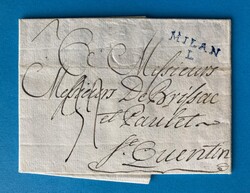 MILAN
L
Messieurs
Messieurs De Brissac
et Paulet
St. Quentin